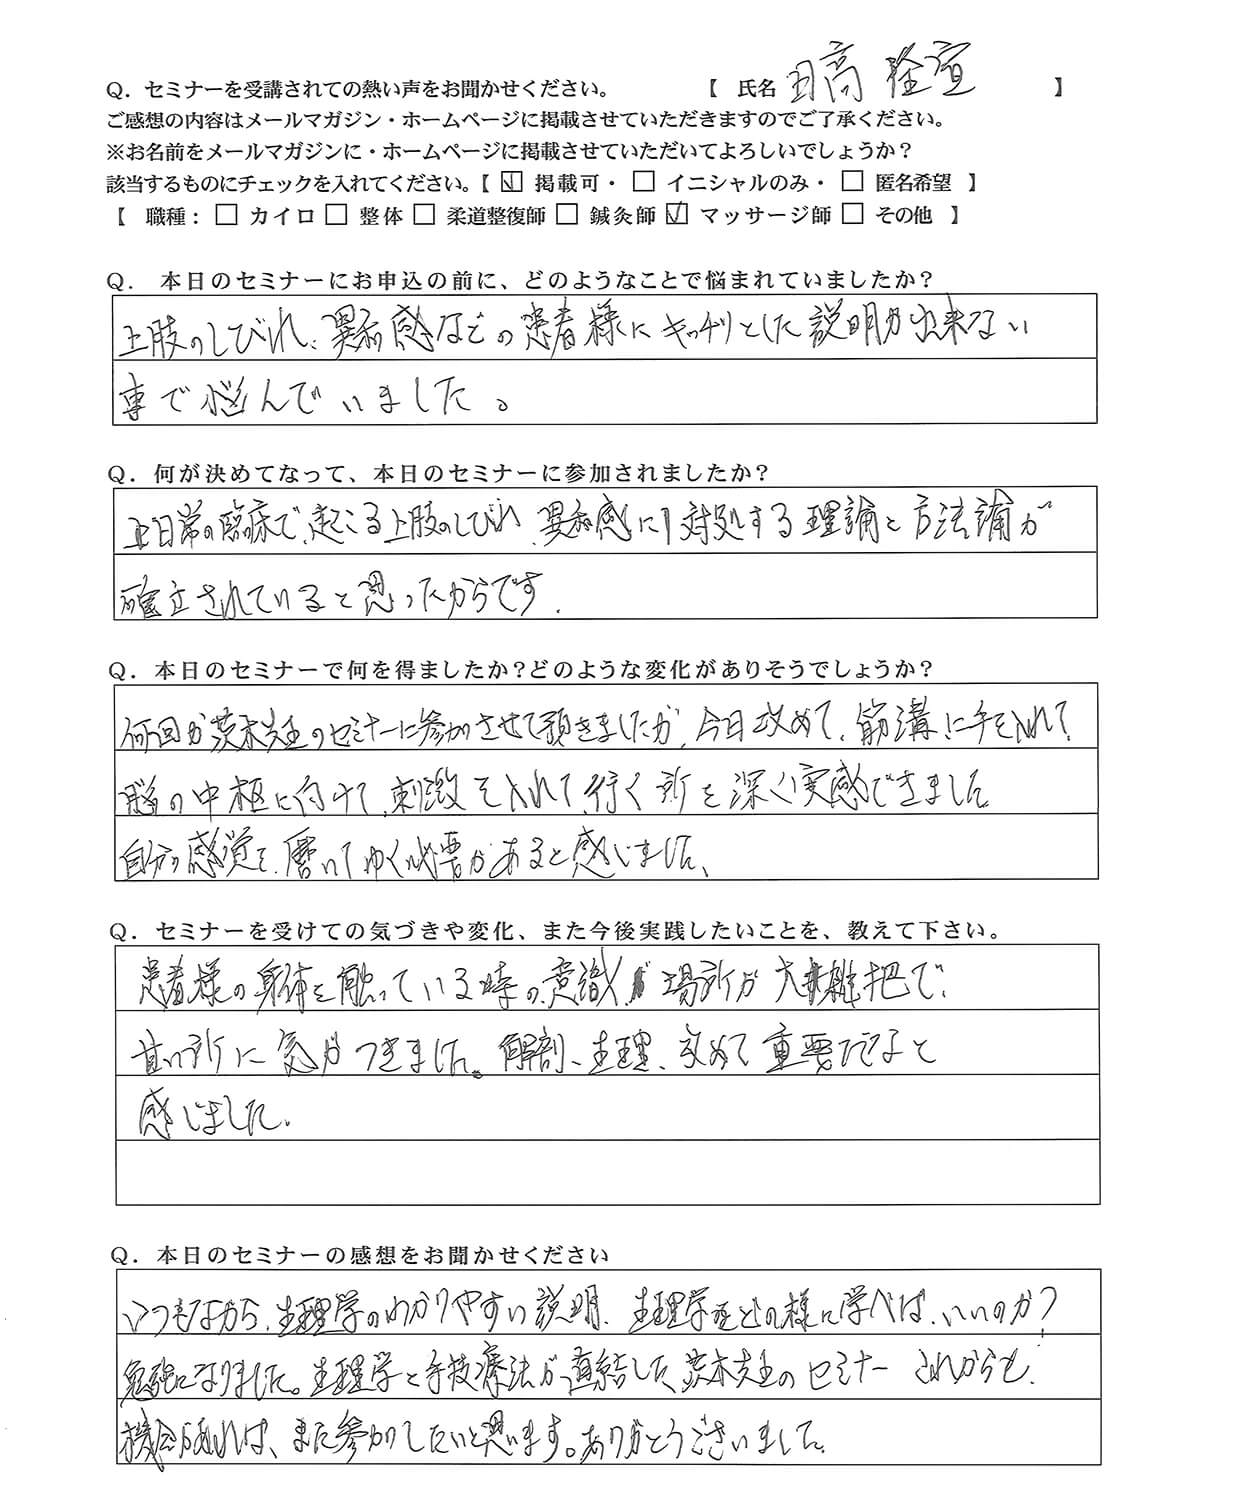 Q. セミナーを受講されての熱い声をお聞かせください。 【 氏名 日高 隆宣 】
ご感想の内容はメールマガジン・ホームページに掲載させていただきますのでご了承ください。
※お名前をメールマガジンに・ホームページに掲載させていただいてよろしいでしょうか？
該当するものにチェックを入れてください。【 ☑ 掲載可・ □ イニシャルのみ・ □ 匿名希望 】
【 職種： □ カイロ □ 整体 □ 柔道整復師 □ 鍼灸師 ☑ マッサージ師 □ その他 】
Q. 本日のセミナーにお申込の前に、どのようなことで悩まれていましたか？
上肢のしびれ、異和感などの患者様にキッチリとした説明が出来ない
事で悩んでいました。
Q. 何が決めてなって、本日のセミナーに参加されましたか？
日常の臨床で、起こる上肢のしびれ、異和感に対処する理論と方法論が
確立されていると思ったからです.
Q. 本日のセミナーで何を得ましたか？どのような変化がありそうでしょうか？
何回か茨木先生のセミナーに参加させて頂きましたが、今日改めて、筋溝に手を入れて、
脳の中枢に向けて、刺激を入れて、行く所を深く実感できました
自分の感覚を、磨いてゆく必要があると感じました、
Q. セミナーを受けての気づきや変化、また今後実践したいことを、教えて下さい。
患者様の身体を触っている時の、意識、場所が大雑把で、
甘い所に気がつきました。解剖、生理、改めて重要だなと
感じました.
Q. 本日のセミナーの感想をお聞かせください
いつもながら、生理学のわかりやすい説明、生理学をどの様に学べば、いいのか？
勉強になりました。生理学と手技療法が直結した、茨木先生のセミナー これからも、
機会があれば、また参加したいと思います。ありがとうございました.